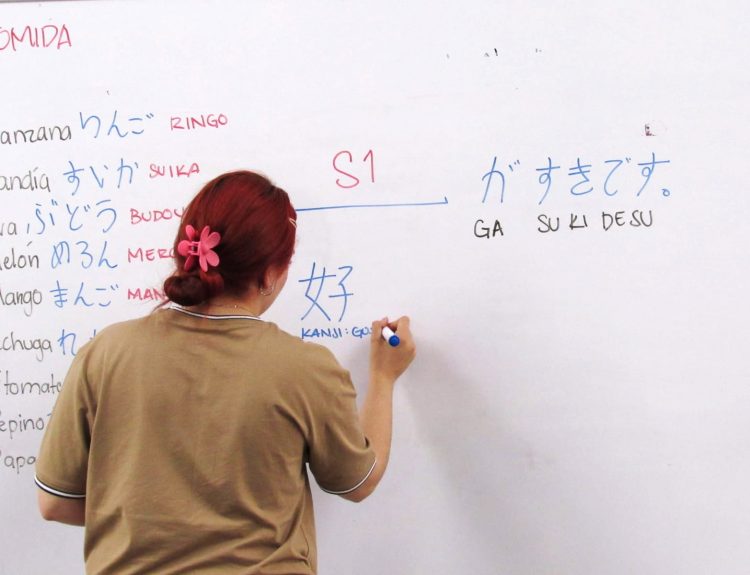 OMIDA
anzana りんご RINGO
andía すいか SUIKA
va ぶどう BUDOU
elón めろん MERO
ango まんご MAN
chuga れ
tomate
epino
apa
S1
がすきです。
GA SUKI DESU
好
KANJI: GO